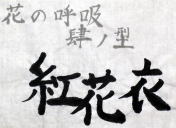 花の呼吸
肆ノ型
紅花衣